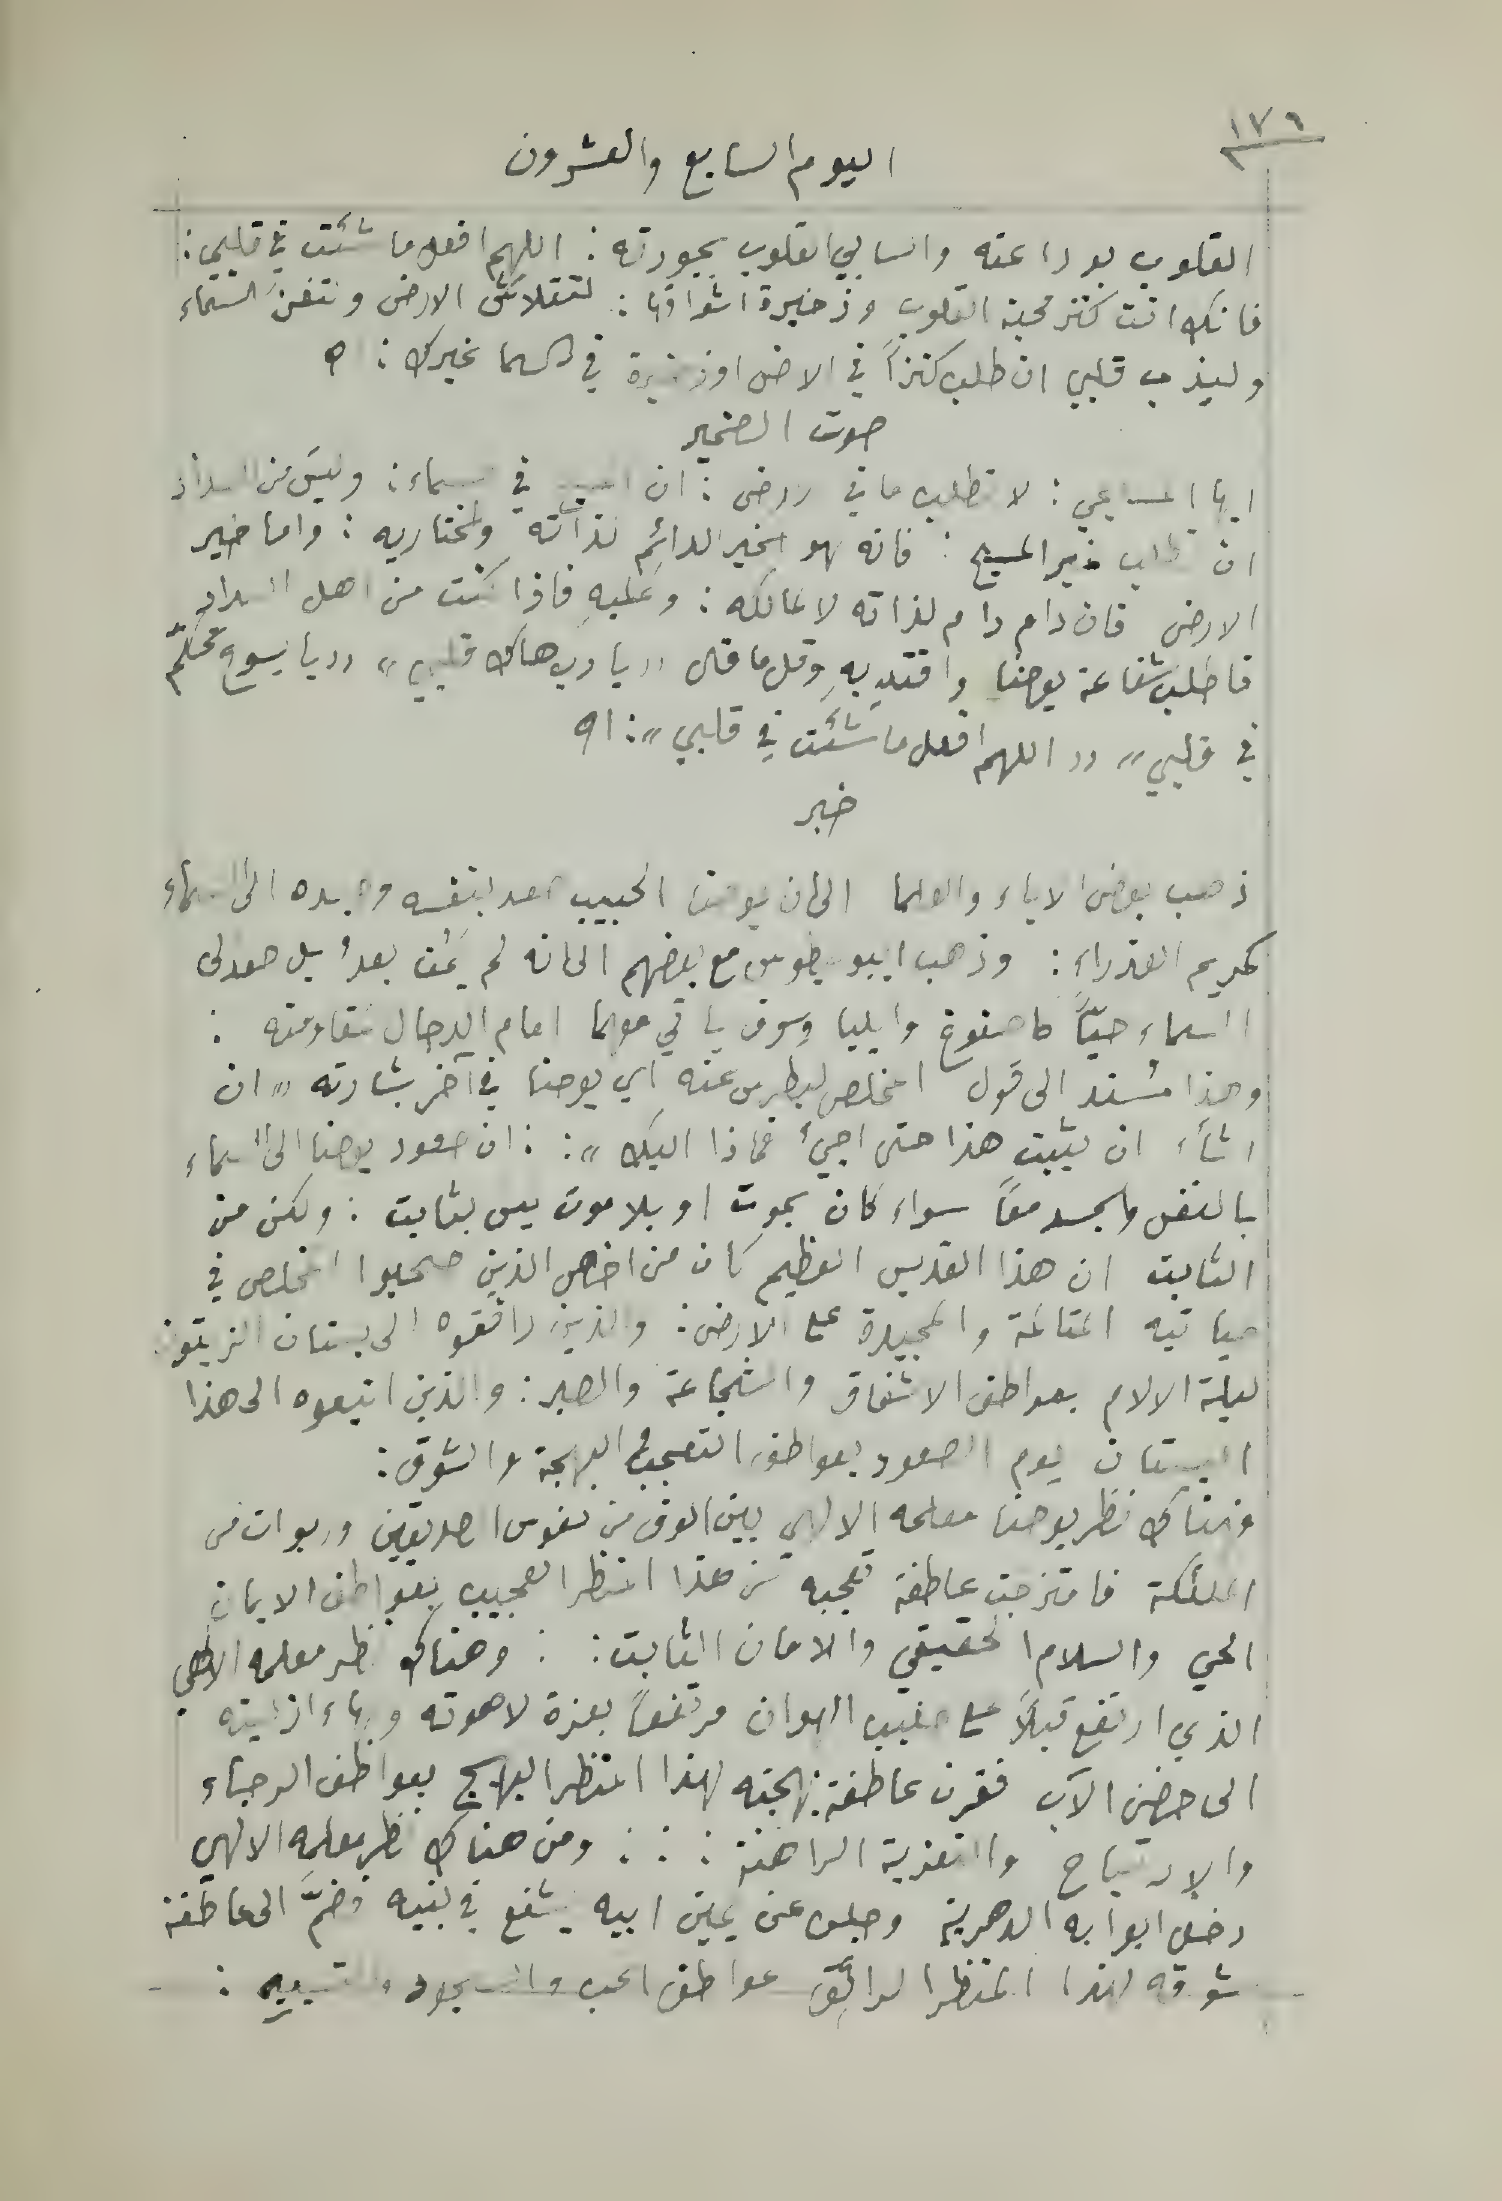 ١٧٦
اليوم السابع والعشرون
القلوب بوداعته والسابي القلوب بجودته : اللهم افعل ما شئت في قلبي :
فانك انت كنز محبة القلوب وذخيرة اشواقها : لتتلاش الارض ولتفن السماء
وليذب قلبي ان طلب كنزاً في الارض او ذخيرة في السما غيرك : اه
صوت الضمير
ايها المسيحي : لا تطلب ما في الارض : ان في السماء : وليس من السداد
ان تطلب غير المسيح : فانه هو الخير الدائم لذاته ولمختاريه : واما خير
الارض فان دام دام لذاته لا لمالكه : وعليهِ فاذا كنت من اهل السداد
فاطلب شفاعة يوحنا واقتدِ بهِ وقل ما قال «يا رب هاك قلبي» «يا يسوع تحكّم
في قلبي» «اللهم افعل ما شئت في قلبي» : اه
خبر
ذهب بعض الاباء والعلما الى ان يوحنا الحبيب صعد بنفسه وجسده الى السماء
كمريم العذراء : وذهب ايبوليطوس مع بعضهم الى انه لم يمُت بعدُ بل صعد الى
السماء حيّاً كاحنوخ وايليا وسوف ياتي معهما امام الدجال لمقاومته :
وهذا مُسند الى قول المخلص لبطرس عنه اي يوحنا في آخر بشارته «ان
اشأء ان يثبت هذا حتى اجيءُ فماذا اليك» : : ان صعود يوحنا الى السماء
بالنفس والجسد معاً سواء كان بموت او بلا موت ليس بثابت : ولكن من
الثابت ان هذا القديس العظيم كان من اخص الذين صحبوا المخلص في
حياتيه المتالمة والمجيدة على الارض : والذين رافقوه الى بستان الزيتون
ليلة الالام بعواطف الاشفاق والشجاعة والصبر : والذين اتبعوه الى هذا
البستان يوم الصعود بعواطف التعجب والبهجة والشوق :
وهناك نظر يوحنا معلمه الالهي بين الوف من نفوس الصديقين وربوات من
الملئكة فامتزجت عاطفة تعجبه من هذا المنظر العجيب بعواطف الايمان
الحي والسلام الحقيقي والامان الثابت : : وهناك نظر معلمه الالهي
الذي ارتفع قبلاً على صليب الهوان مرتفعاً بعزة لاهوته وبهاء ازليته
الى حضن الآب فقرن عاطفة بهجته لهذا المنظر البهيج بعواطف الرجاء
والارتياح والتعزية الراهنة : : : ومن هناك نظر معلمِه الالهي
دخل ابوابه الدهرية وجلس عن يمين ابيه يشفع في بنيه فضمَّ الى عاطفة
شوقه لهذا المنظر الرائِق عواطف الحب والسجود والتسبيح :